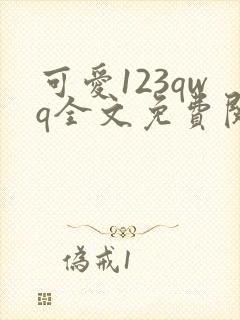 可愛123qw
q全文免費
偽戒1